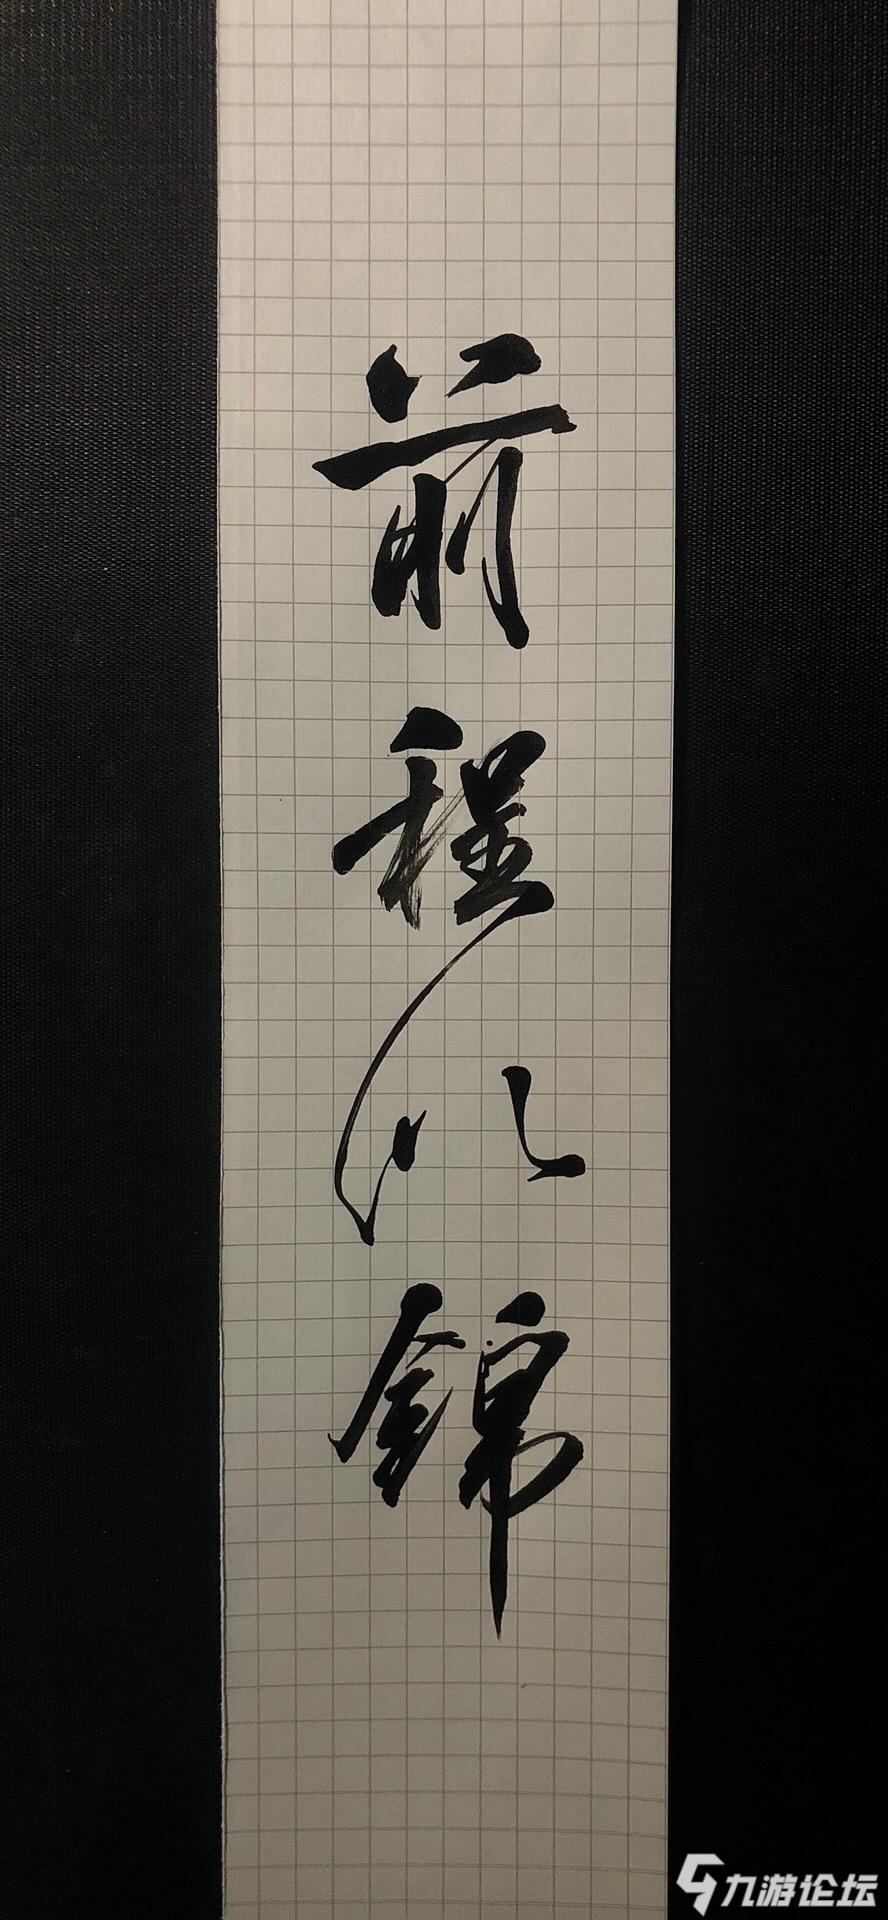 前程以錦
九游论坛